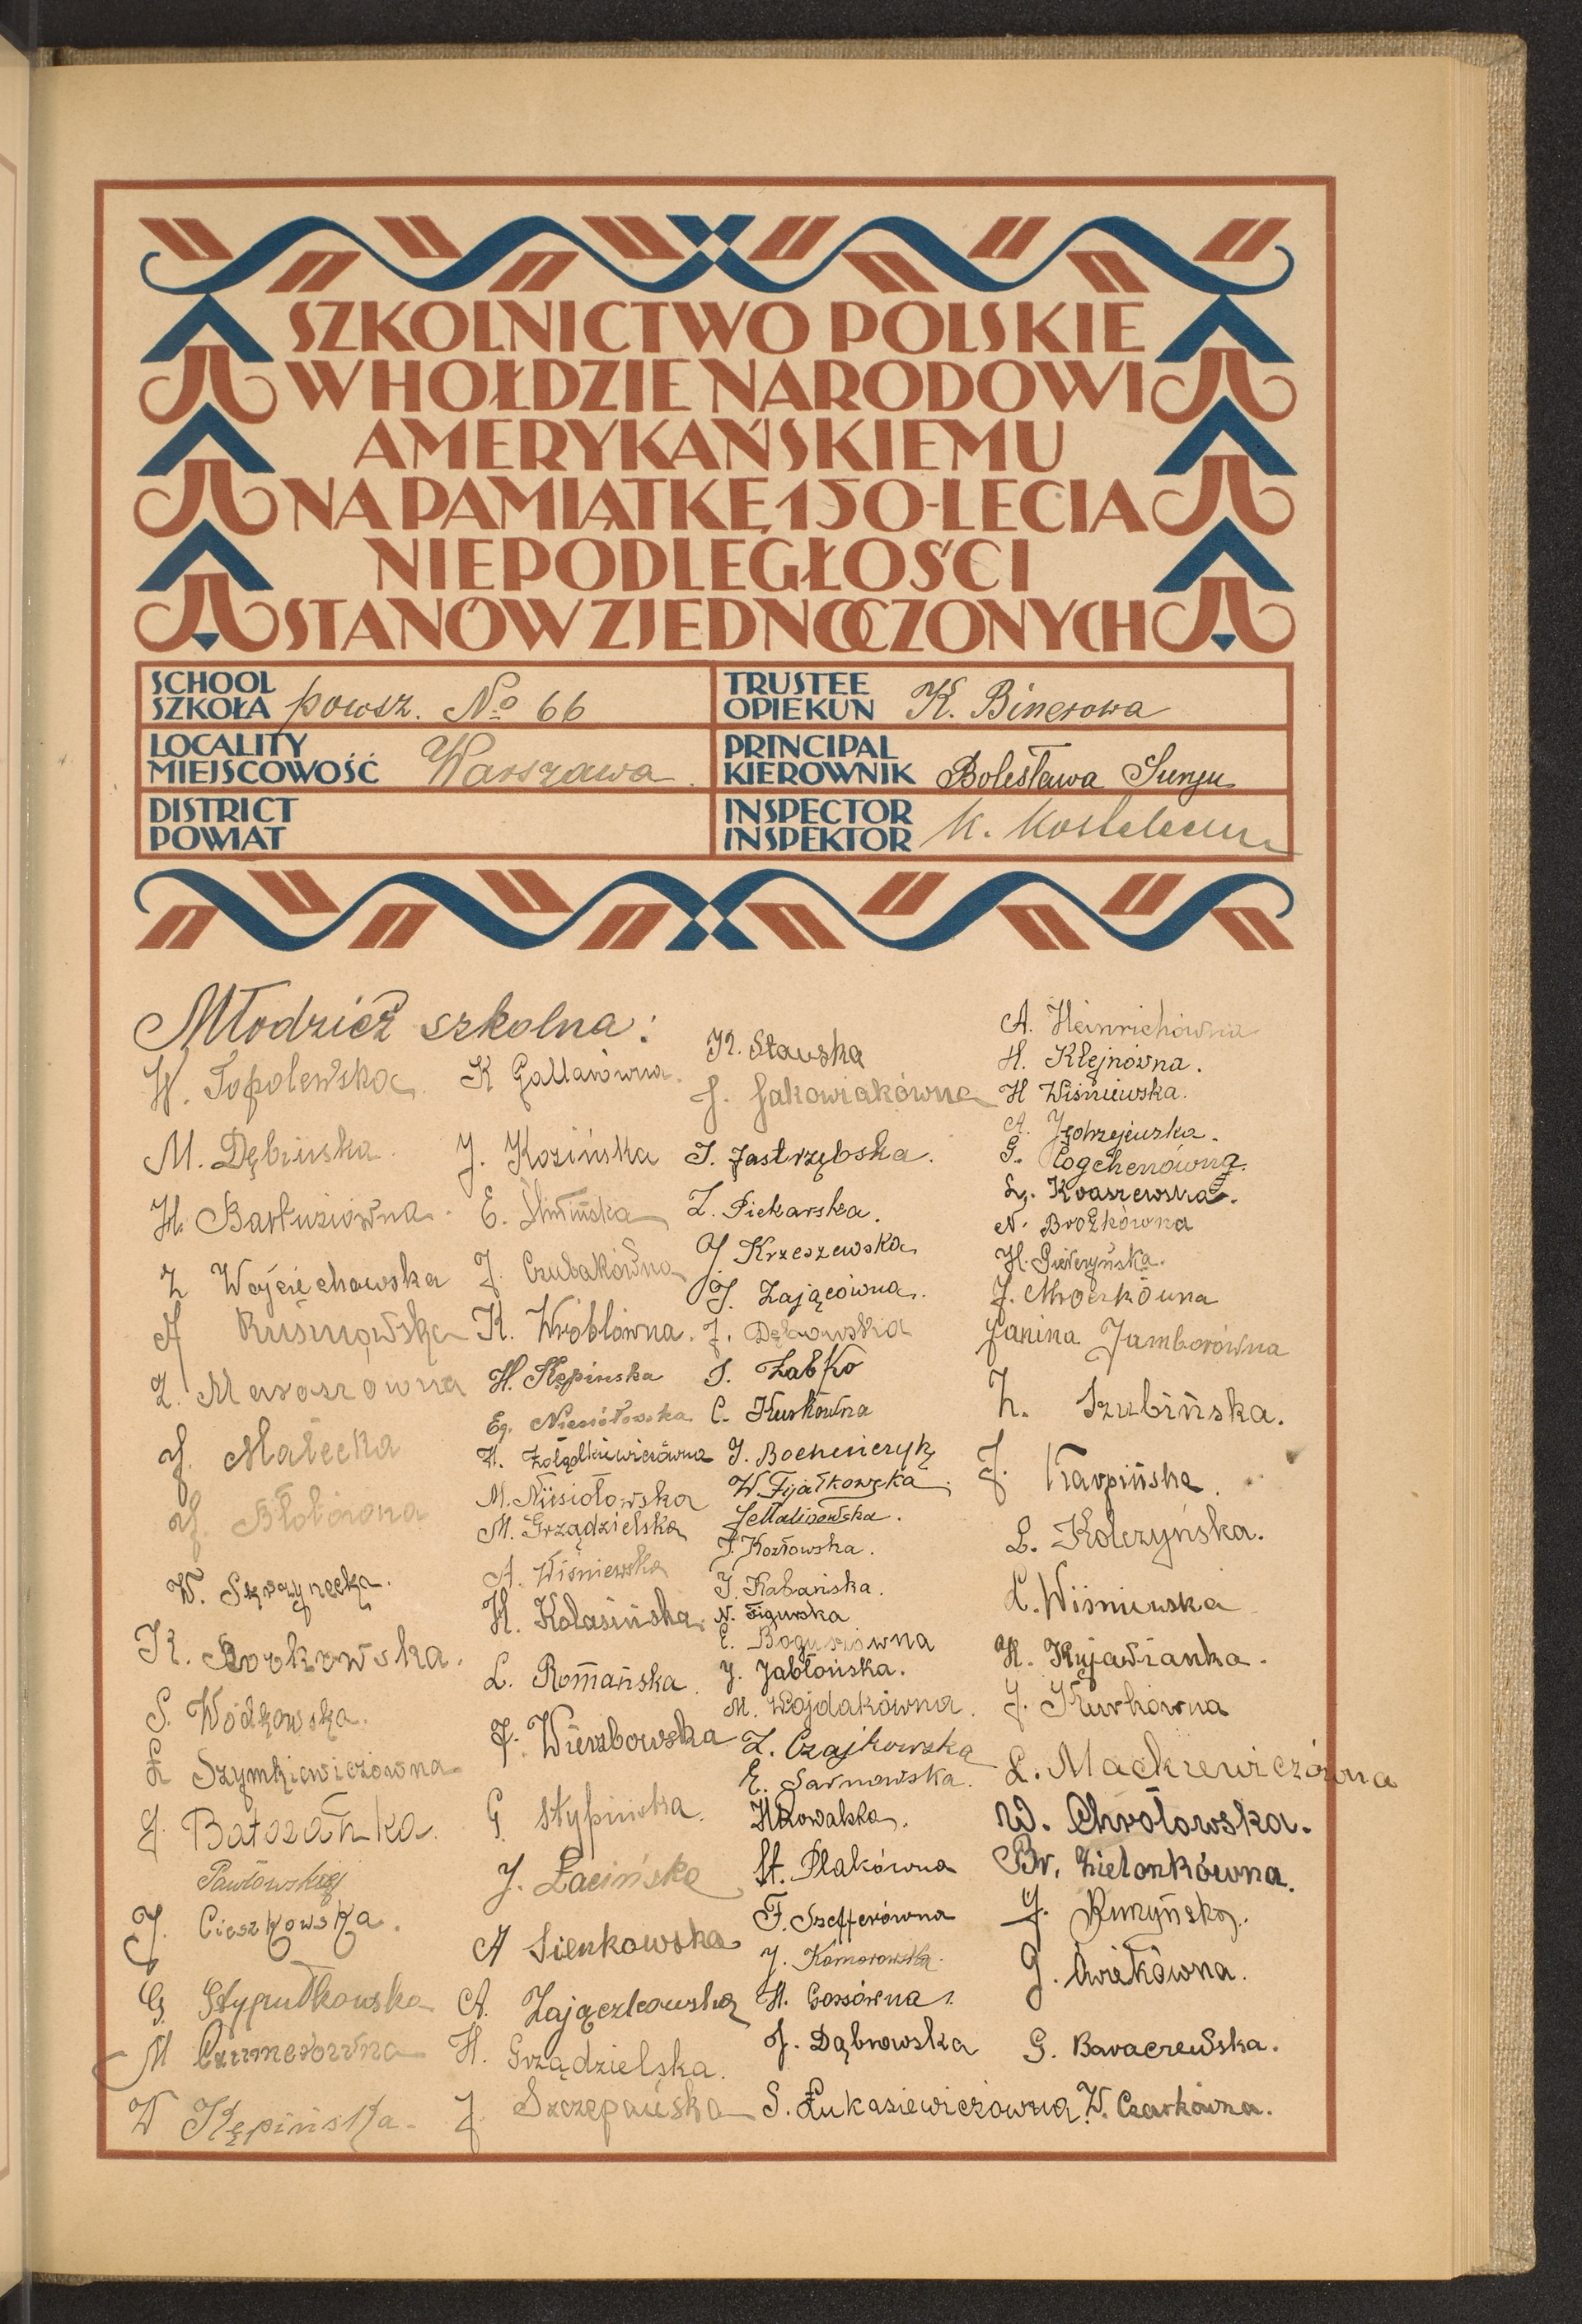 SZKOLNICTWO POLSKIE
W HOŁDZIE NARODOWI
AMERYKAŃSKIEMU
NA PAMIĄTKĘ 150-LECIA
NIEPODLEGŁOŚCI
STANÓW ZJEDNOCZONYCH
SCHOOL
SZKOŁA powsz. No 66
TRUSTEE
OPIEKUN K. Binerowa
LOCALITY
MIEJSCOWOŚĆ Warszawa
PRINCIPAL
KIEROWNIK Bolesława
DISTRICT
POWIAT
INSPECTOR
INSPEKTOR K.
Młodzież szkolna:
W. Topolewska
M. Dębińska
H. Bartusiówna
Z Wojciechowska
A
Z. Maroszówna
J. Małecka
J. Błotówna
W. Skrzynecka.
K. Borkowska.
S. Wódkowska.
Szymkiewiczówna
J. Batorańka.
Pawłowskiej
J. Cieszkowska.
G Stypułkowska
M
W Kępińska.
K Gallasówna.
J. Kozińska
E. Śliwińska
J. Czubakówna
K. Wróblówna.
H. Kępinska
Eg. Niesiołowska
H. Żołądkiewiczówna
M. Niesiołowska
M. Grządzielska
A. Wiśniewska
H. Kolasińska
L. Romańska
J. Wierzbowska
G Stypińska.
J. Łacińska
A Sienkowska
A. Zajączkowska
H. Grządzielska.
J. Szczepańska
K. Stawska
J. Jakowiakówna
S. Jastrzębska.
Z. Piekarska.
J Krzeszewska
J. Zającówna.
J. Dębowska
S. Żabko
C. Kurkówna
J. Bochenczyk
W. Fijałkowska
J. Malinowska.
J. Kozłowska.
J. Kabańska.
N. Figurska
E. Bogusiówna
J. Jabłońska.
M. Wojdakówna.
Z. Czajkowska
E. Sarnowska.
H Kowalska.
St. Ptakówna
F. Szefferówna
J. Komorowska.
H. Gossówna.
J. Dąbrowska
S. Łukasiewiczówna
A. Heinrichówna
H. Klejnówna.
H Wiśniewska.
A. Jędrzejewska.
G.
L. Kraszewska.
N. Brożkówna
H.
J. Mroczkówna
Janina Jamborówna
Z. Szubińska.
J. Karpińska.
L. Kolczyńska.
L. Wiśniewska
H. Kujawianka.
J. Kurkówna
L. Mackiewiczówna
W. Chrołowska.
Br. Zielonkówna.
J.
J. Ćwiekówna.
G. Baraczewska.
W. Czarkówna.